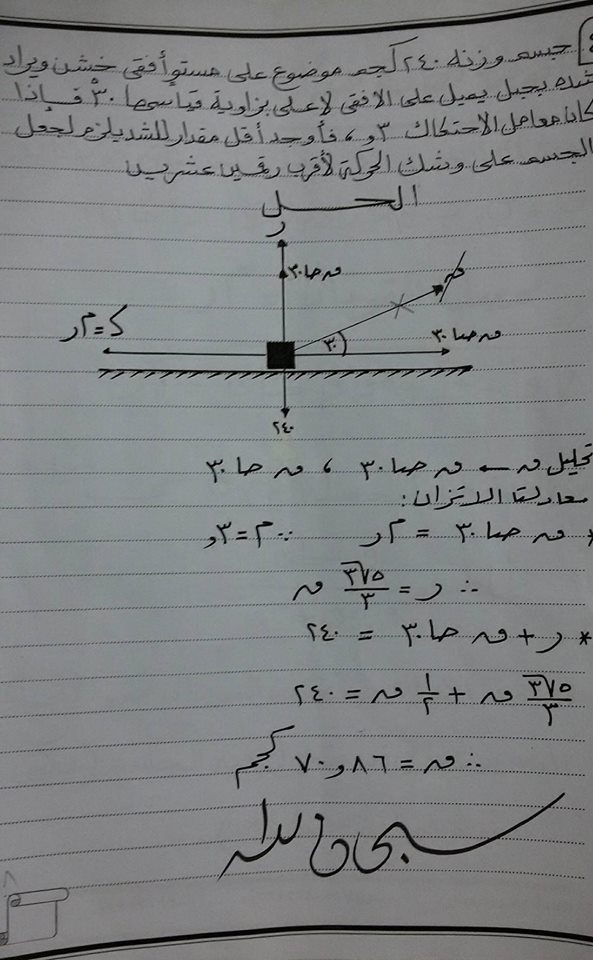 جسم وزنه ٢٤٠ كجم موضوع على مستو أفقى خشن ويراد
شده بحبل يميل على الافقى لاعلى بزاوية قياسها ٣٠ْ فإذا
كان معامل الاحتكاك ٣و ، فأوجد أقل مقدار للشد يلزم لجعل
الجسم على وشك الحركة لأقرب رقمين عشريين
الحــل
ر
ق حا ٣٠
ق
٣٠
ق حتا ٣٠
ك = م ر
٢٤٠
تحليل ق ← ق حتا ٣٠ ، ق حا ٣٠
معادلتا الاتزان:
* ق حتا ٣٠ = م ر ∵ م = ٣و
∴ ر = ٥√٣/٣ ق
* ر + ق حا ٣٠ = ٢٤٠
٥√٣/٣ ق + ١/٢ ق = ٢٤٠
∴ ق = ٨٦و٧٠ كجم
٨